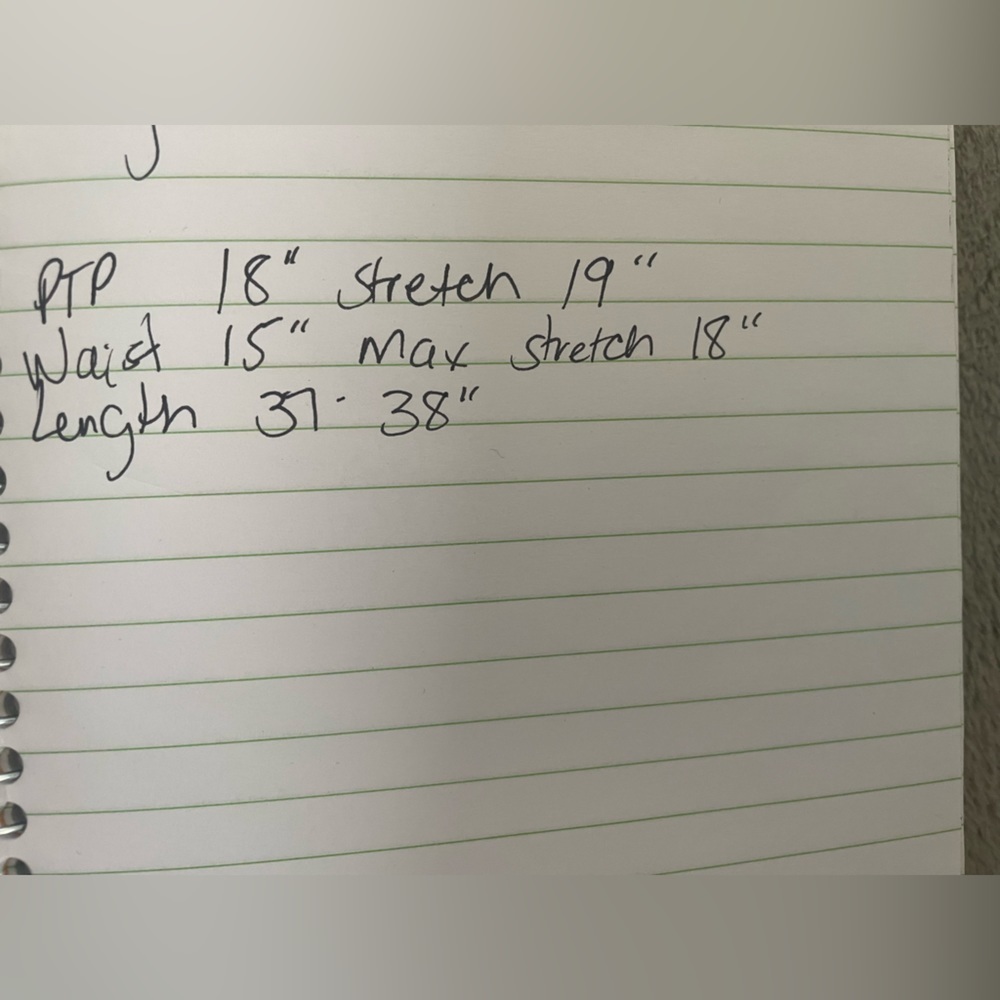 PTP 18" Stretch 19"
Waist 15" Max stretch 18"
Length 37 - 38"